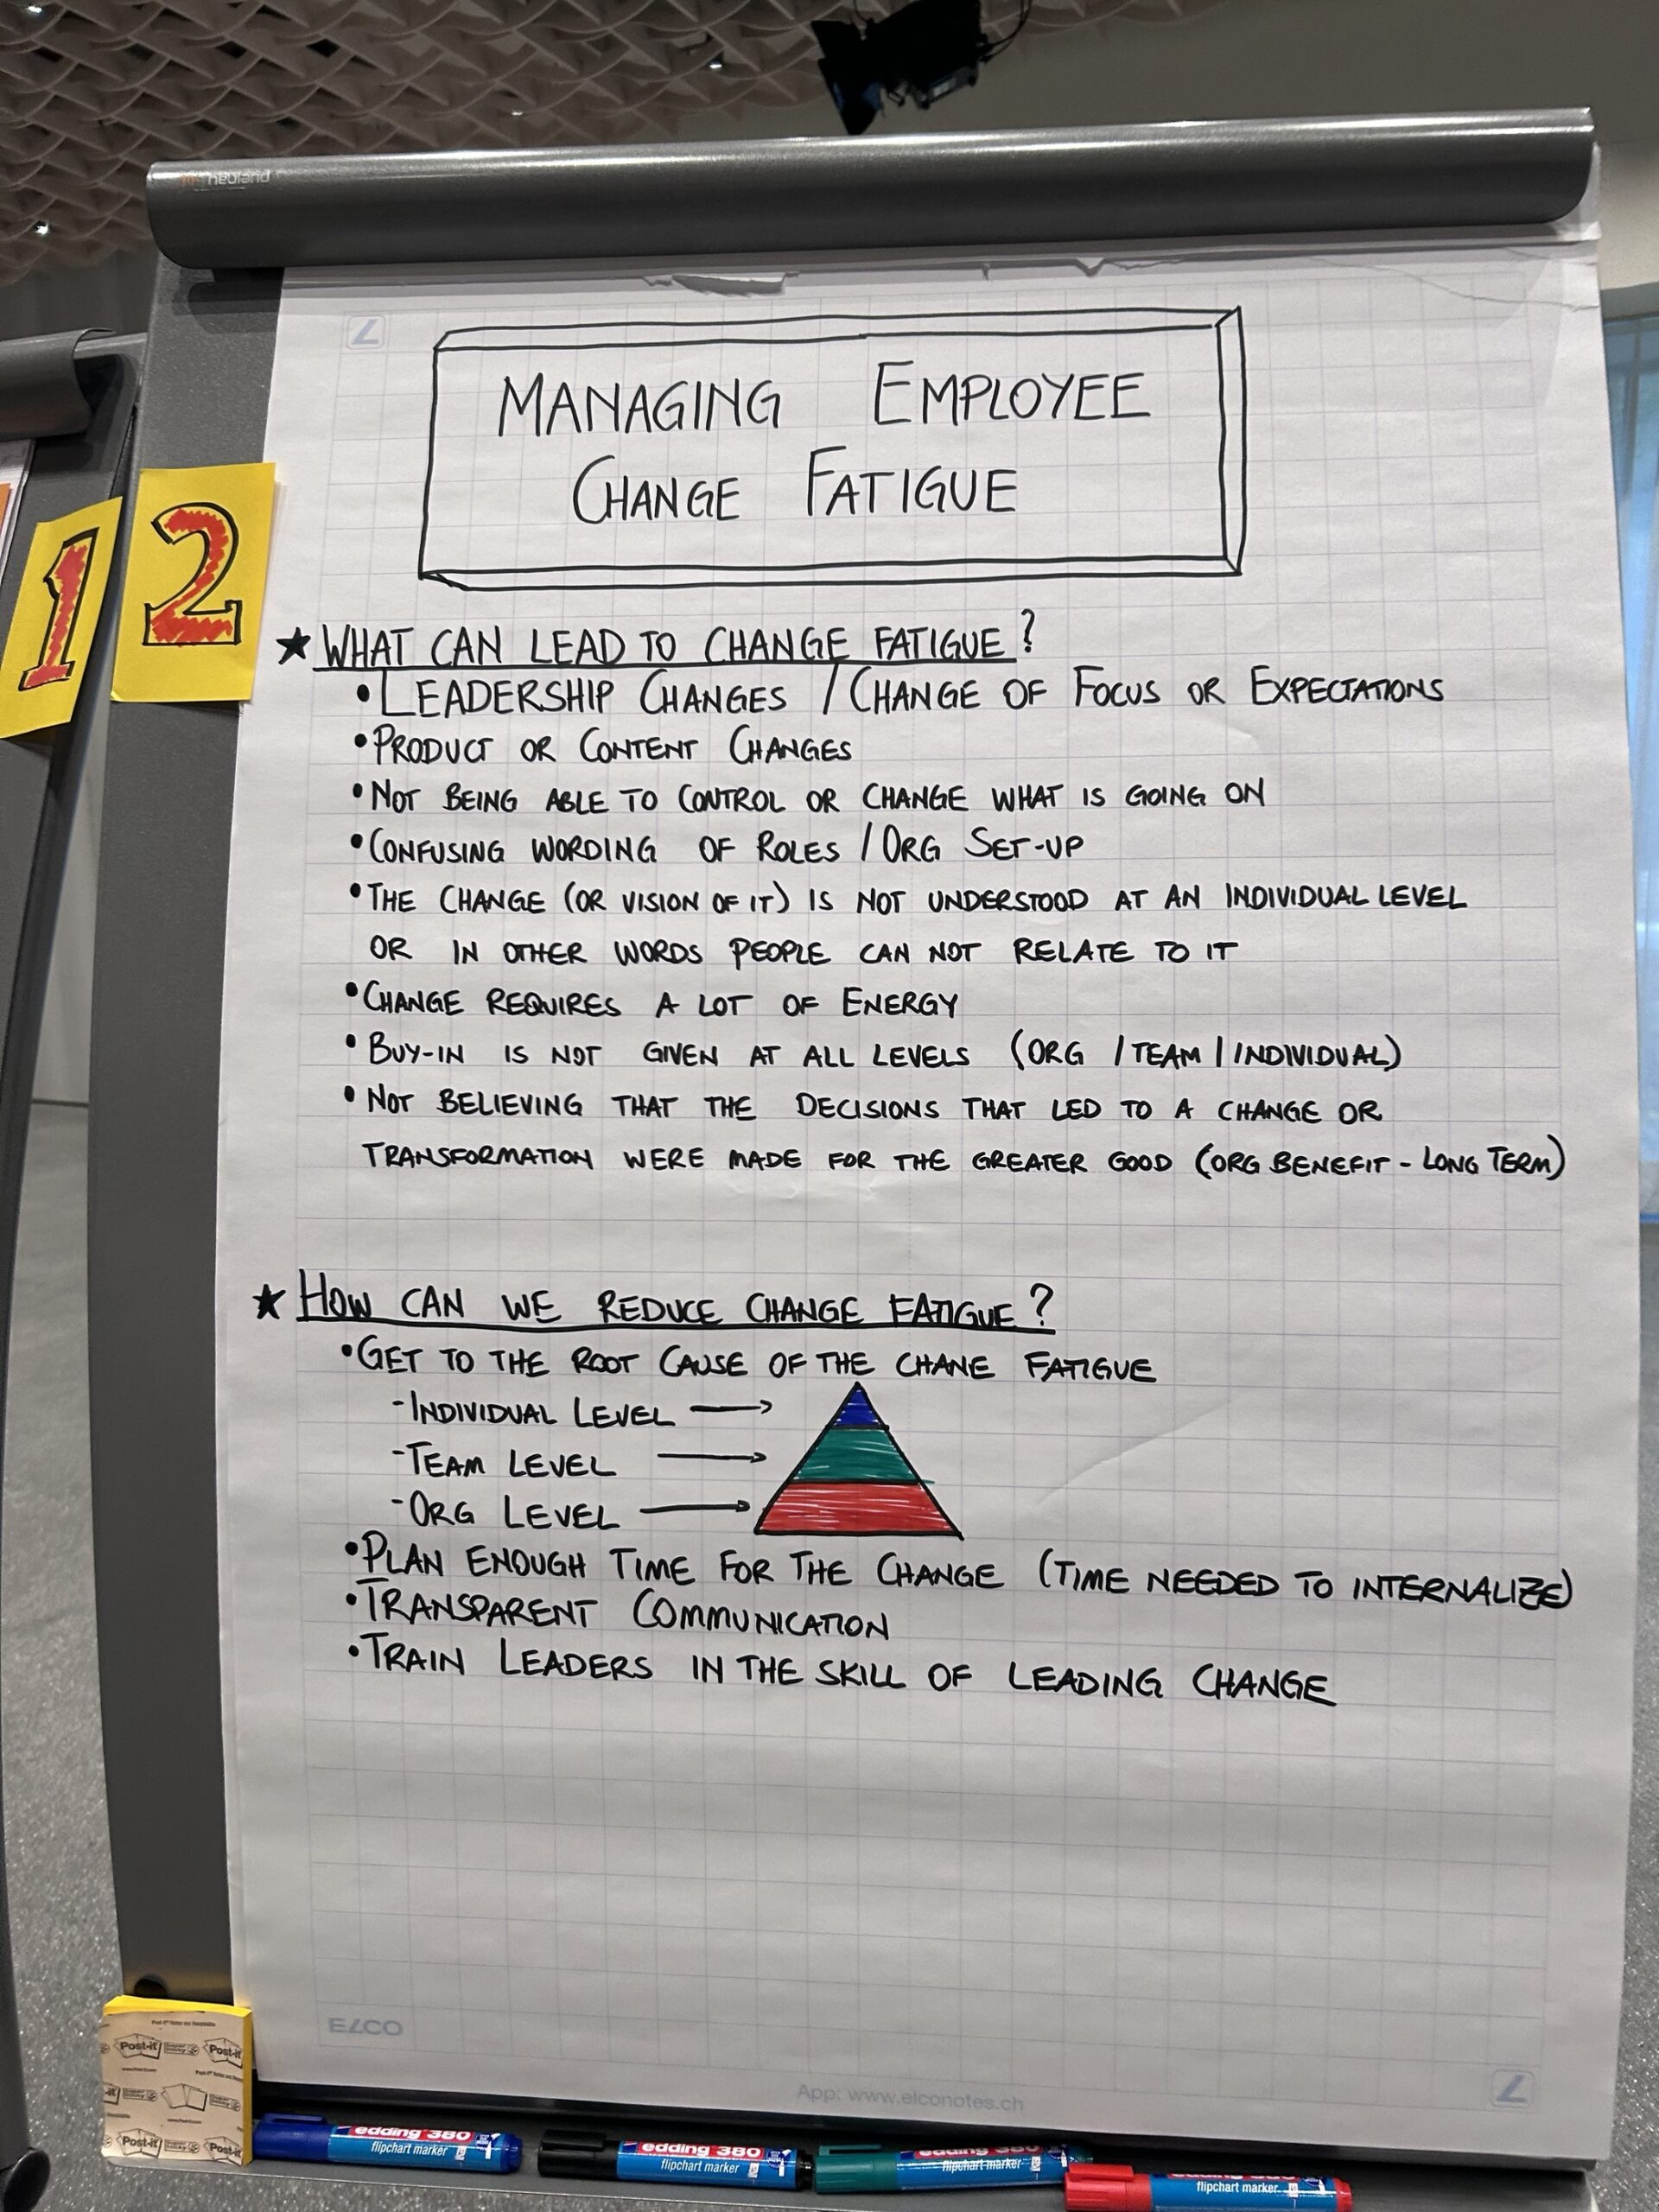 neuland
MANAGING EMPLOYEE
CHANGE FATIGUE
1
2
★ WHAT CAN LEAD TO CHANGE FATIGUE?
• LEADERSHIP CHANGES / CHANGE OF FOCUS OR EXPECTATIONS
• PRODUCT OR CONTENT CHANGES
• NOT BEING ABLE TO CONTROL OR CHANGE WHAT IS GOING ON
• CONFUSING WORDING OF ROLES / ORG SET-UP
• THE CHANGE (OR VISION OF IT) IS NOT UNDERSTOOD AT AN INDIVIDUAL LEVEL
OR IN OTHER WORDS PEOPLE CAN NOT RELATE TO IT
• CHANGE REQUIRES A LOT OF ENERGY
• BUY-IN IS NOT GIVEN AT ALL LEVELS (ORG / TEAM / INDIVIDUAL)
• NOT BELIEVING THAT THE DECISIONS THAT LED TO A CHANGE OR
TRANSFORMATION WERE MADE FOR THE GREATER GOOD (ORG BENEFIT - LONG TERM)
★ HOW CAN WE REDUCE CHANGE FATIGUE?
• GET TO THE ROOT CAUSE OF THE CHANE FATIGUE
- INDIVIDUAL LEVEL
- TEAM LEVEL
- ORG LEVEL
• PLAN ENOUGH TIME FOR THE CHANGE (TIME NEEDED TO INTERNALIZE)
• TRANSPARENT COMMUNICATION
• TRAIN LEADERS IN THE SKILL OF LEADING CHANGE
ELCO
App: www.elconotes.ch
Post-it Post-it
Post-it
Post-it Post-it
edding 380
flipchart marker
edding 380
flipchart marker
edding 380
flipchart marker
edding 380
flipchart marker